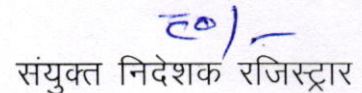 ह०/-
संयुक्त निदेशक रजिस्ट्रार